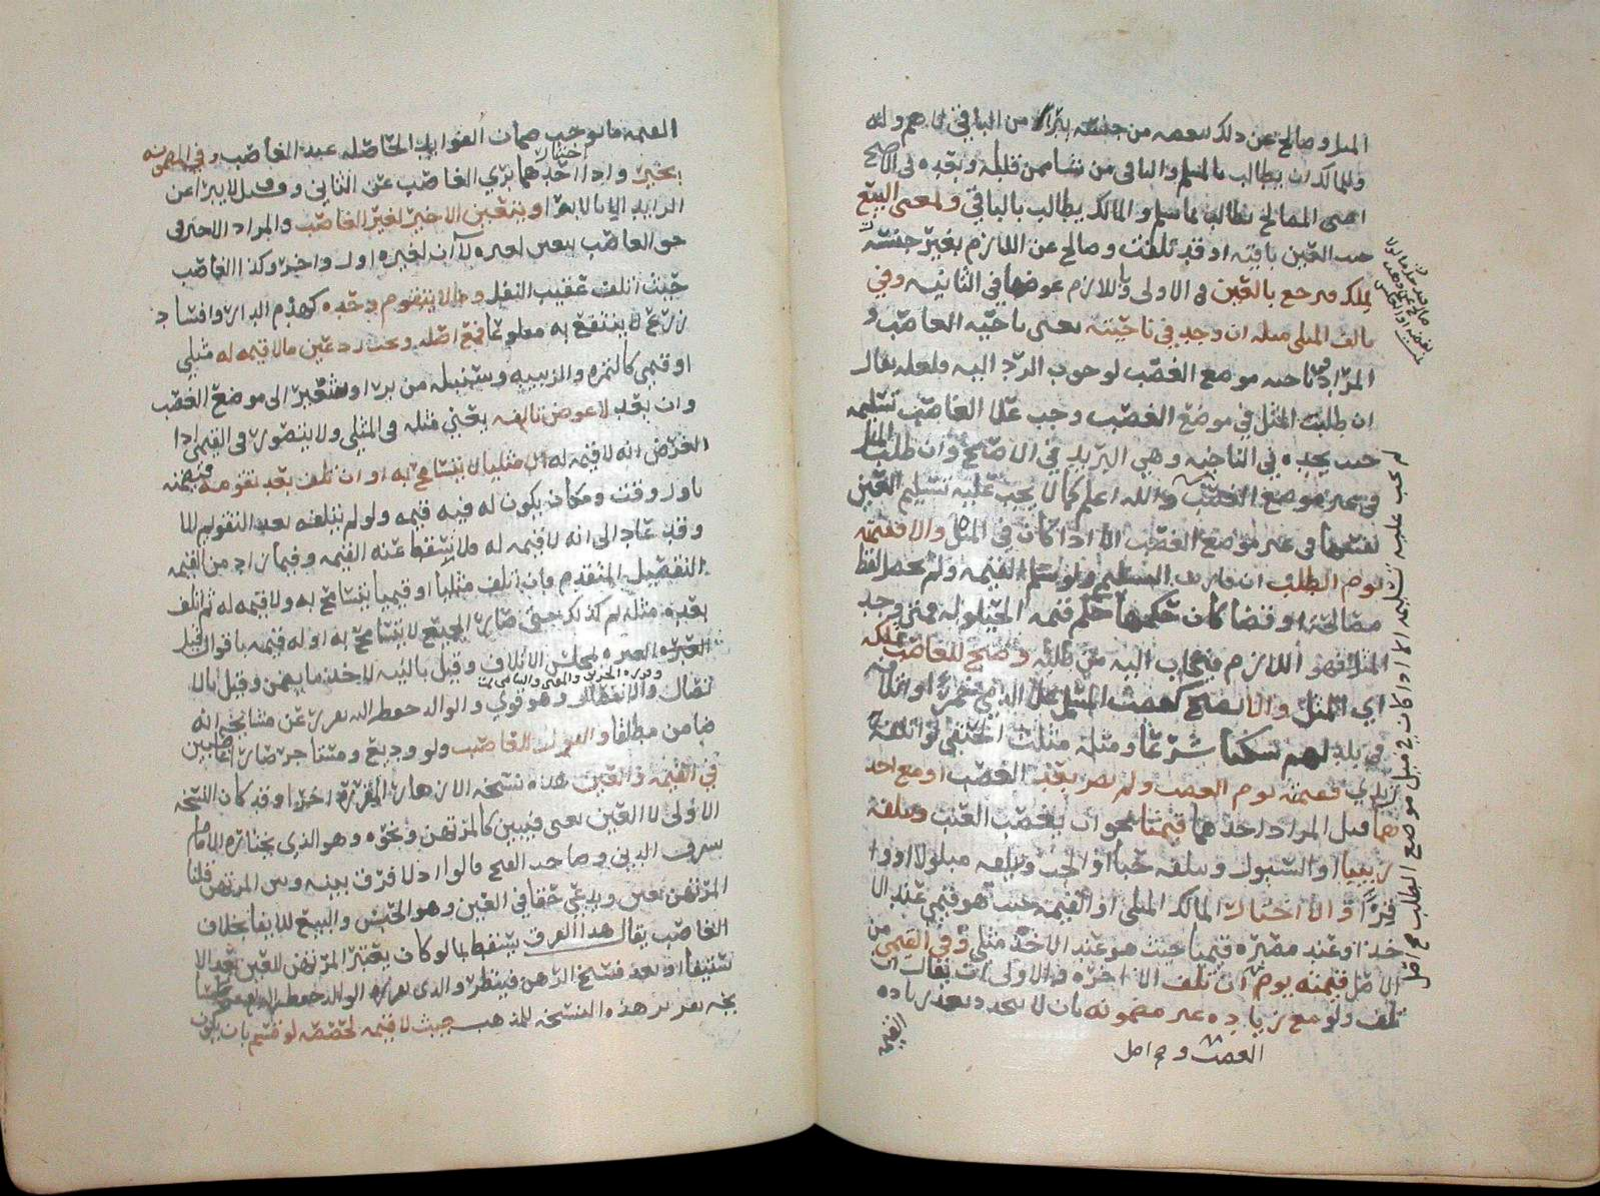 المثل وصالح عن ذلك ببعضه من جنسه يبرا من الباقي لا هم وله
وللمالك ان يطالب بالمثل والباقي من شا ممن قبله وبعده في الاصح
المصالح يطالب بما سلم والمالك يطالب بالباقي ولمعنى البيع
حيث العين باقية او قد تلفت وصالح عن اللازم بغير جنسه
يملك فيرجع بالعين في الاولى واللازم عوضها في الثانيه وفي
تالف المثلي مثله ان وجد في ناحيته يعني ناحية الغاصب و
المراد ناحيه موضع الغصب لوجوب الرد اليه ولعله يقال
ان طلب المثل في موضع الغصب وجب على الغاصب تسليمه
حيث يجده في الناحيه وهي البريد في الاصح وان طلب المثل
في غير موضع الغصب والله اعلم كما لا يجب عليه تسليم العين
نفسها في غير موضع الغصب الا اذا كان في المثل والا فقيمته
يوم الطلب ان قارنه التسليم ولو سلم القيمه ولم يحصل لفظ
مصالحة او قضا كان حكمها حكم قيمه الحيلوله ومتى وجد
المثل فهو اللازم فيجاب اليه من طلبه وصح للغاصب تملكه
اي المثل والا
في بلد لهم سكنا شرعا ومثله مثلث الحنفي لو اتلفه
زيدي فقيمته يوم الغصب ولم يصر بعد الغصب او مع احد
هما قبل المراد احدهما قيميا نحو ان يغصب العنب ويتلفه
زبيبا او السنبول ويتلفه حبا او الحب ويتلفه مبلولا او وا
فرة او الا اختار المالك المثلي او القيمه حيث هو قيمي عند الا
خذ او عند مصيره قيميا حيث هو عند الاخذ مثلي وفي القيمي من
الاصل قيمته يوم ان تلف الا اخره والاولى ان يقال ان
تلف ولو مع زياده غير مضمونه بان لا يجدد بعد زياده
الغصب وح اصل
القيمه
لم يجب عليه تسليمه الا اذا كان في مثل موضع الطلب ح اصل
القيمه ما يوجب ضمان الفوايد الحاصله عند الغاصب وفي المضمونه
يخير واذا اختار احدهما بري الغاصب عن الثاني وقيل لا يبرا عن
الزايد الا بالابرا او يتعين الاخير لغير الغاصب والمراد الاخر في
حق الغاصب يتعين لغيره لا ان لغيره اول واخر وكذا الغاصب
حيث اتلف عقيب النقل وما لا يتقوم وحده كهدم الدار وافساد
زرع لا ينتفع به مقلوعا فمع اصله ويجب رد عين ما لا قيمه له مثلي
او قيمي كالتمره والزبيبه وسنبله من بر او شعير الى موضع الغصب
وان بعد لا عوض تالفه يعني مثله في المثلي ولا يتصور في القيمي اذا
الفرض انه لا قيمه له الا مثليا لا يتسامح به او ان تلف بعد تقومه فيضمنه
باول وقت ومكان يكون له فيه قيمه ولو لم يتلفه بعد التقويم الا
وقد عاد الى انه لا قيمه له فلا يسقط عنه القيمه وفيما زاد من القيمه
التفصيل المتقدم وان اتلف مثليا او قيميا يتسامح به ولا قيمه له ثم اتلف
بعده مثله ثم كذلك حتى صار الجميع لا يتسامح به او له قيمه باقوال قيل
العبره بمجلس الاتلاف وقيل بالنيه لاخذ ما يضمن وقيل بالا
تصال والانفصال وهو قوي والوالد حفظه الله يقرر عن مشايخه انه
ضامن مطلقا والقول للغاصب ولو وديع ومستاجر صارا غاصبين
في القيمه والعين هذه نسخه الازهار المقرره اخرا وقد كان النسخه
الاولى لا العين يعني فيبين كالمرتهن ونحوه وهو الذي يختاره الامام
شرف الدين وصاحب الفتح قالوا اذ لا فرق بينه وبين المرتهن قلنا
المرتهن يعين ويدعي حقا في العين وهو الحبس والبيع للايفا بخلاف
الغاصب يقال هذا الفرق يسقط بما لو كان يعتبر المرتهن للعين بعد الا
ستيفا او بعد فسخ الرهن فينظر والذي يقرره الوالد حفظه الله
يخه تقرير هذه النسخه للمذهب حيث لا قيمه لحصصه لو قسم بان يكون